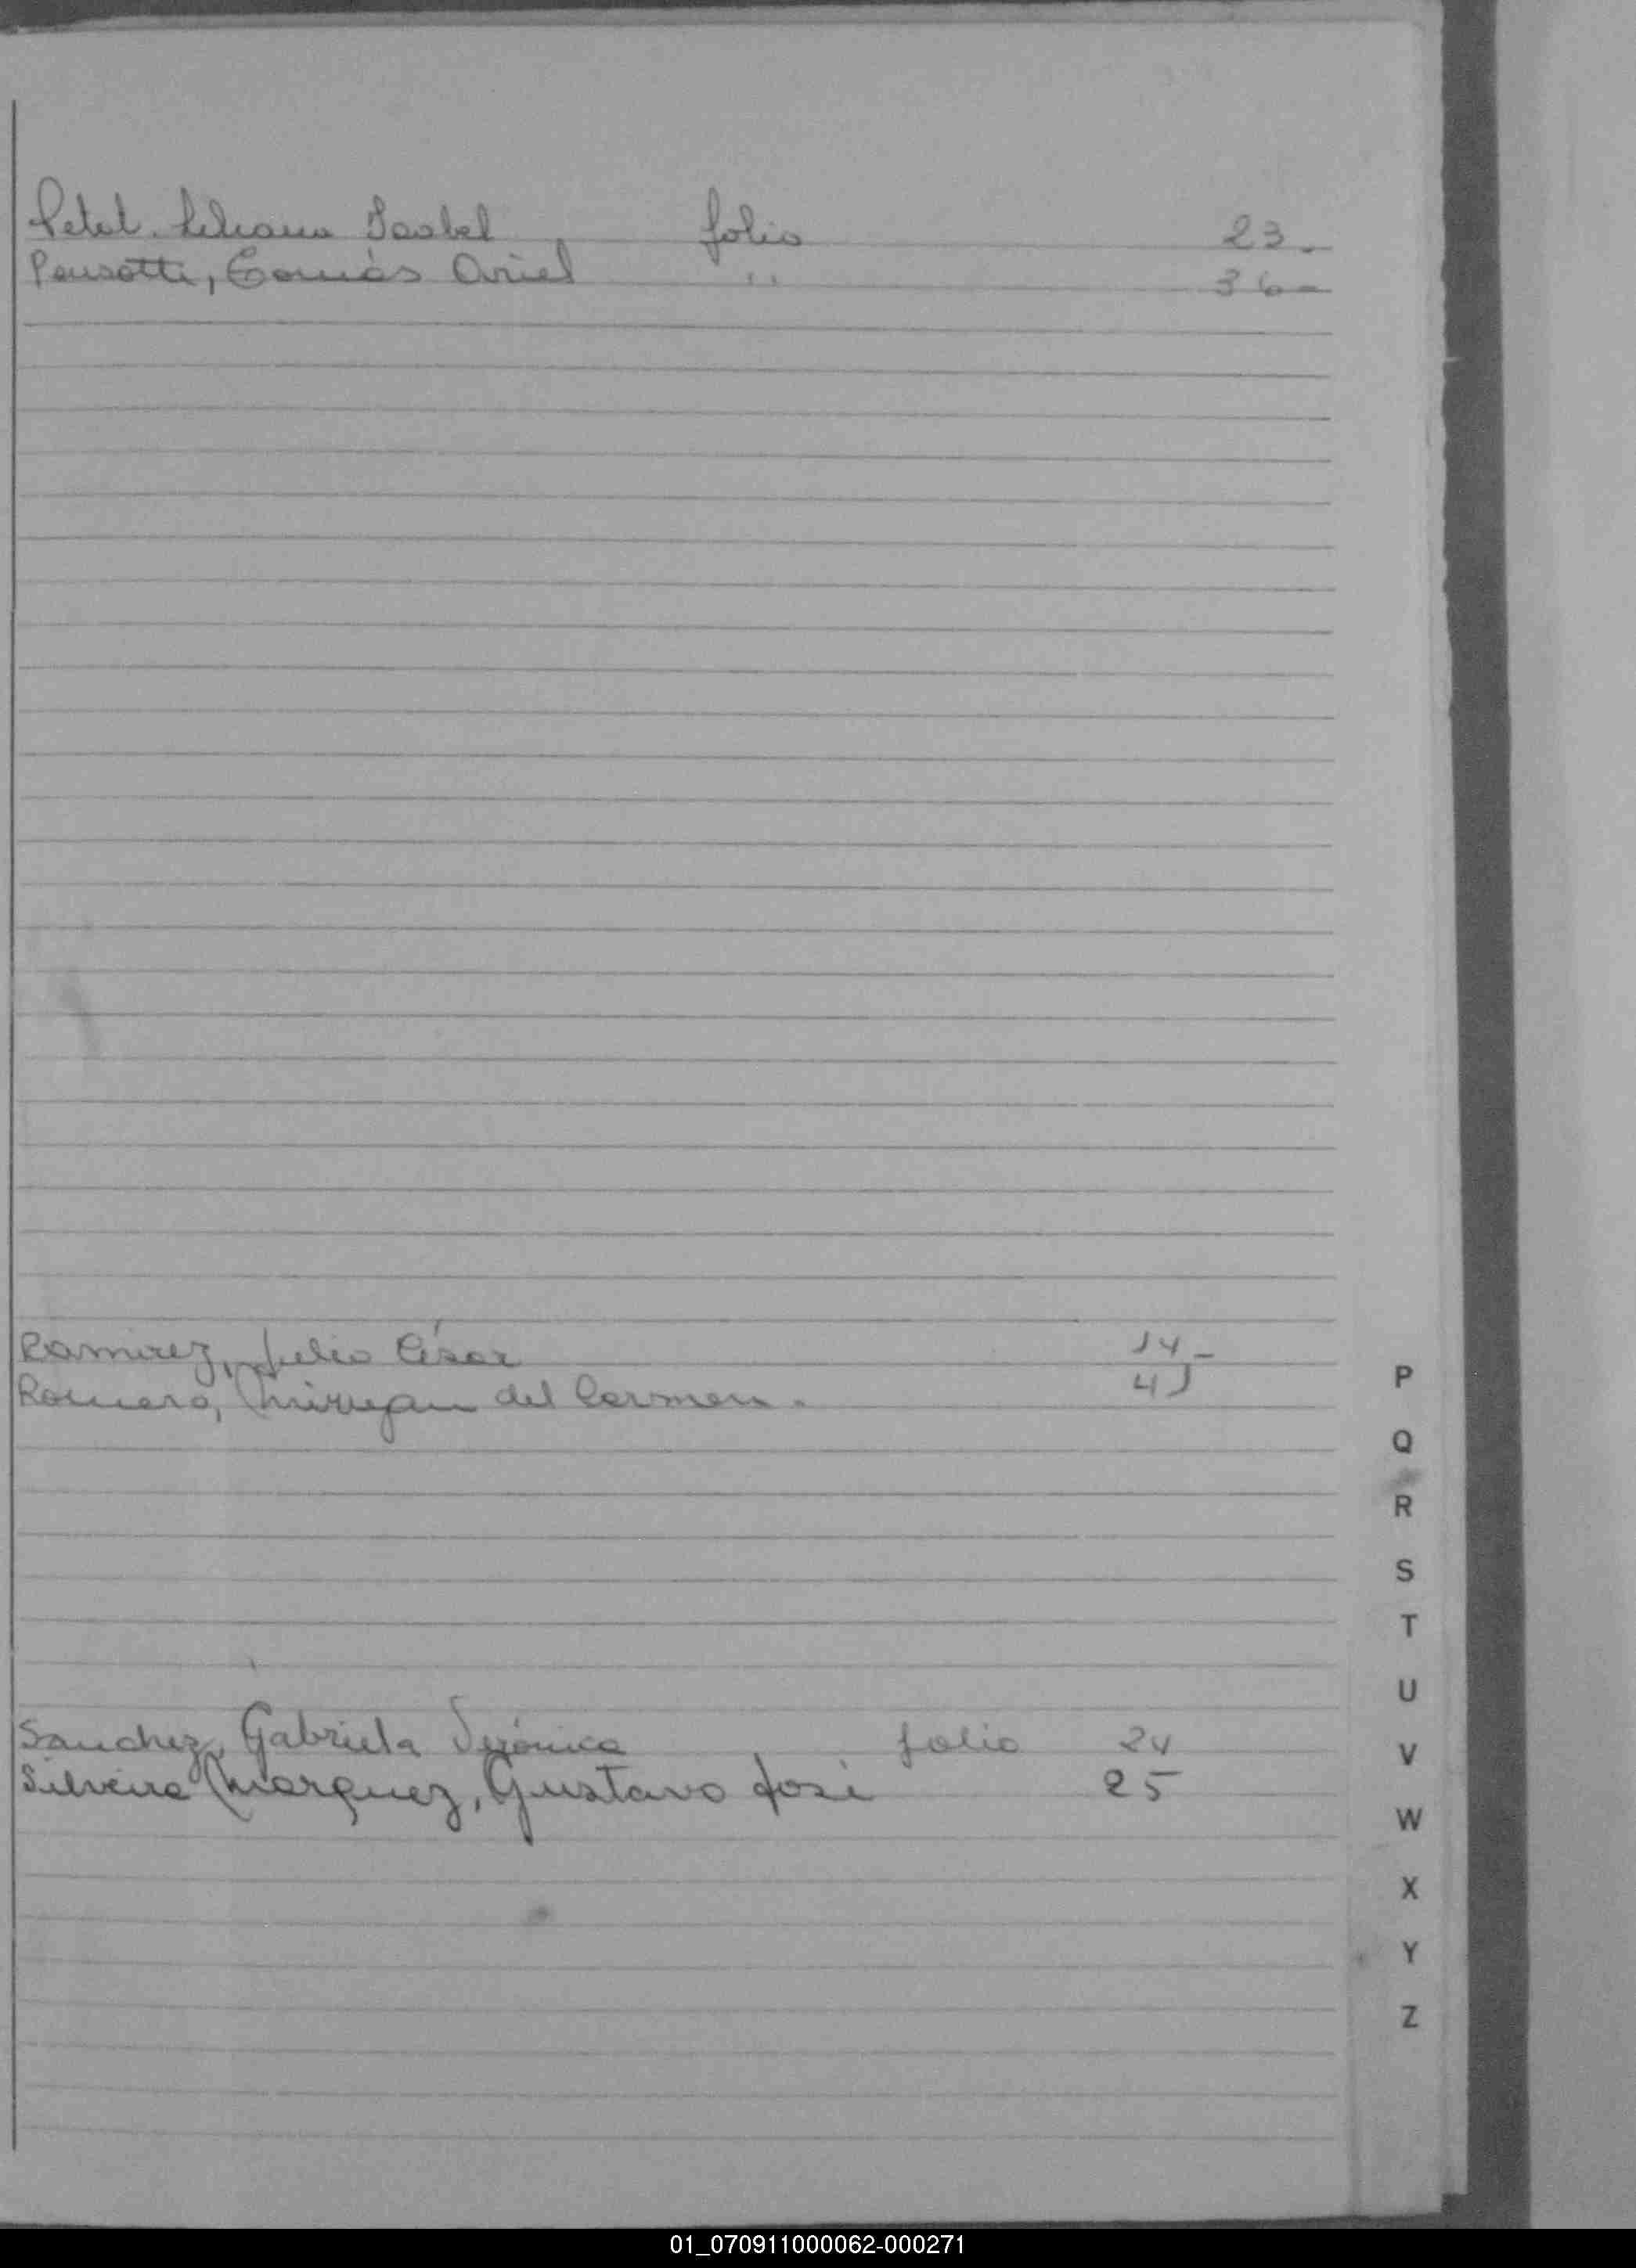 Petel. Liliana Isabel folio 23.-
Pensotti, Tomás Ariel '' 36-
Ramirez, Julio César 14-
Romero, Miryan del Carmen. 41
Sanchez, Gabriela Verónica folio 24
Silveira Marquez, Gustavo José 25
P
Q
R
S
T
U
V
W
X
Y
Z
01_070911000062-000271